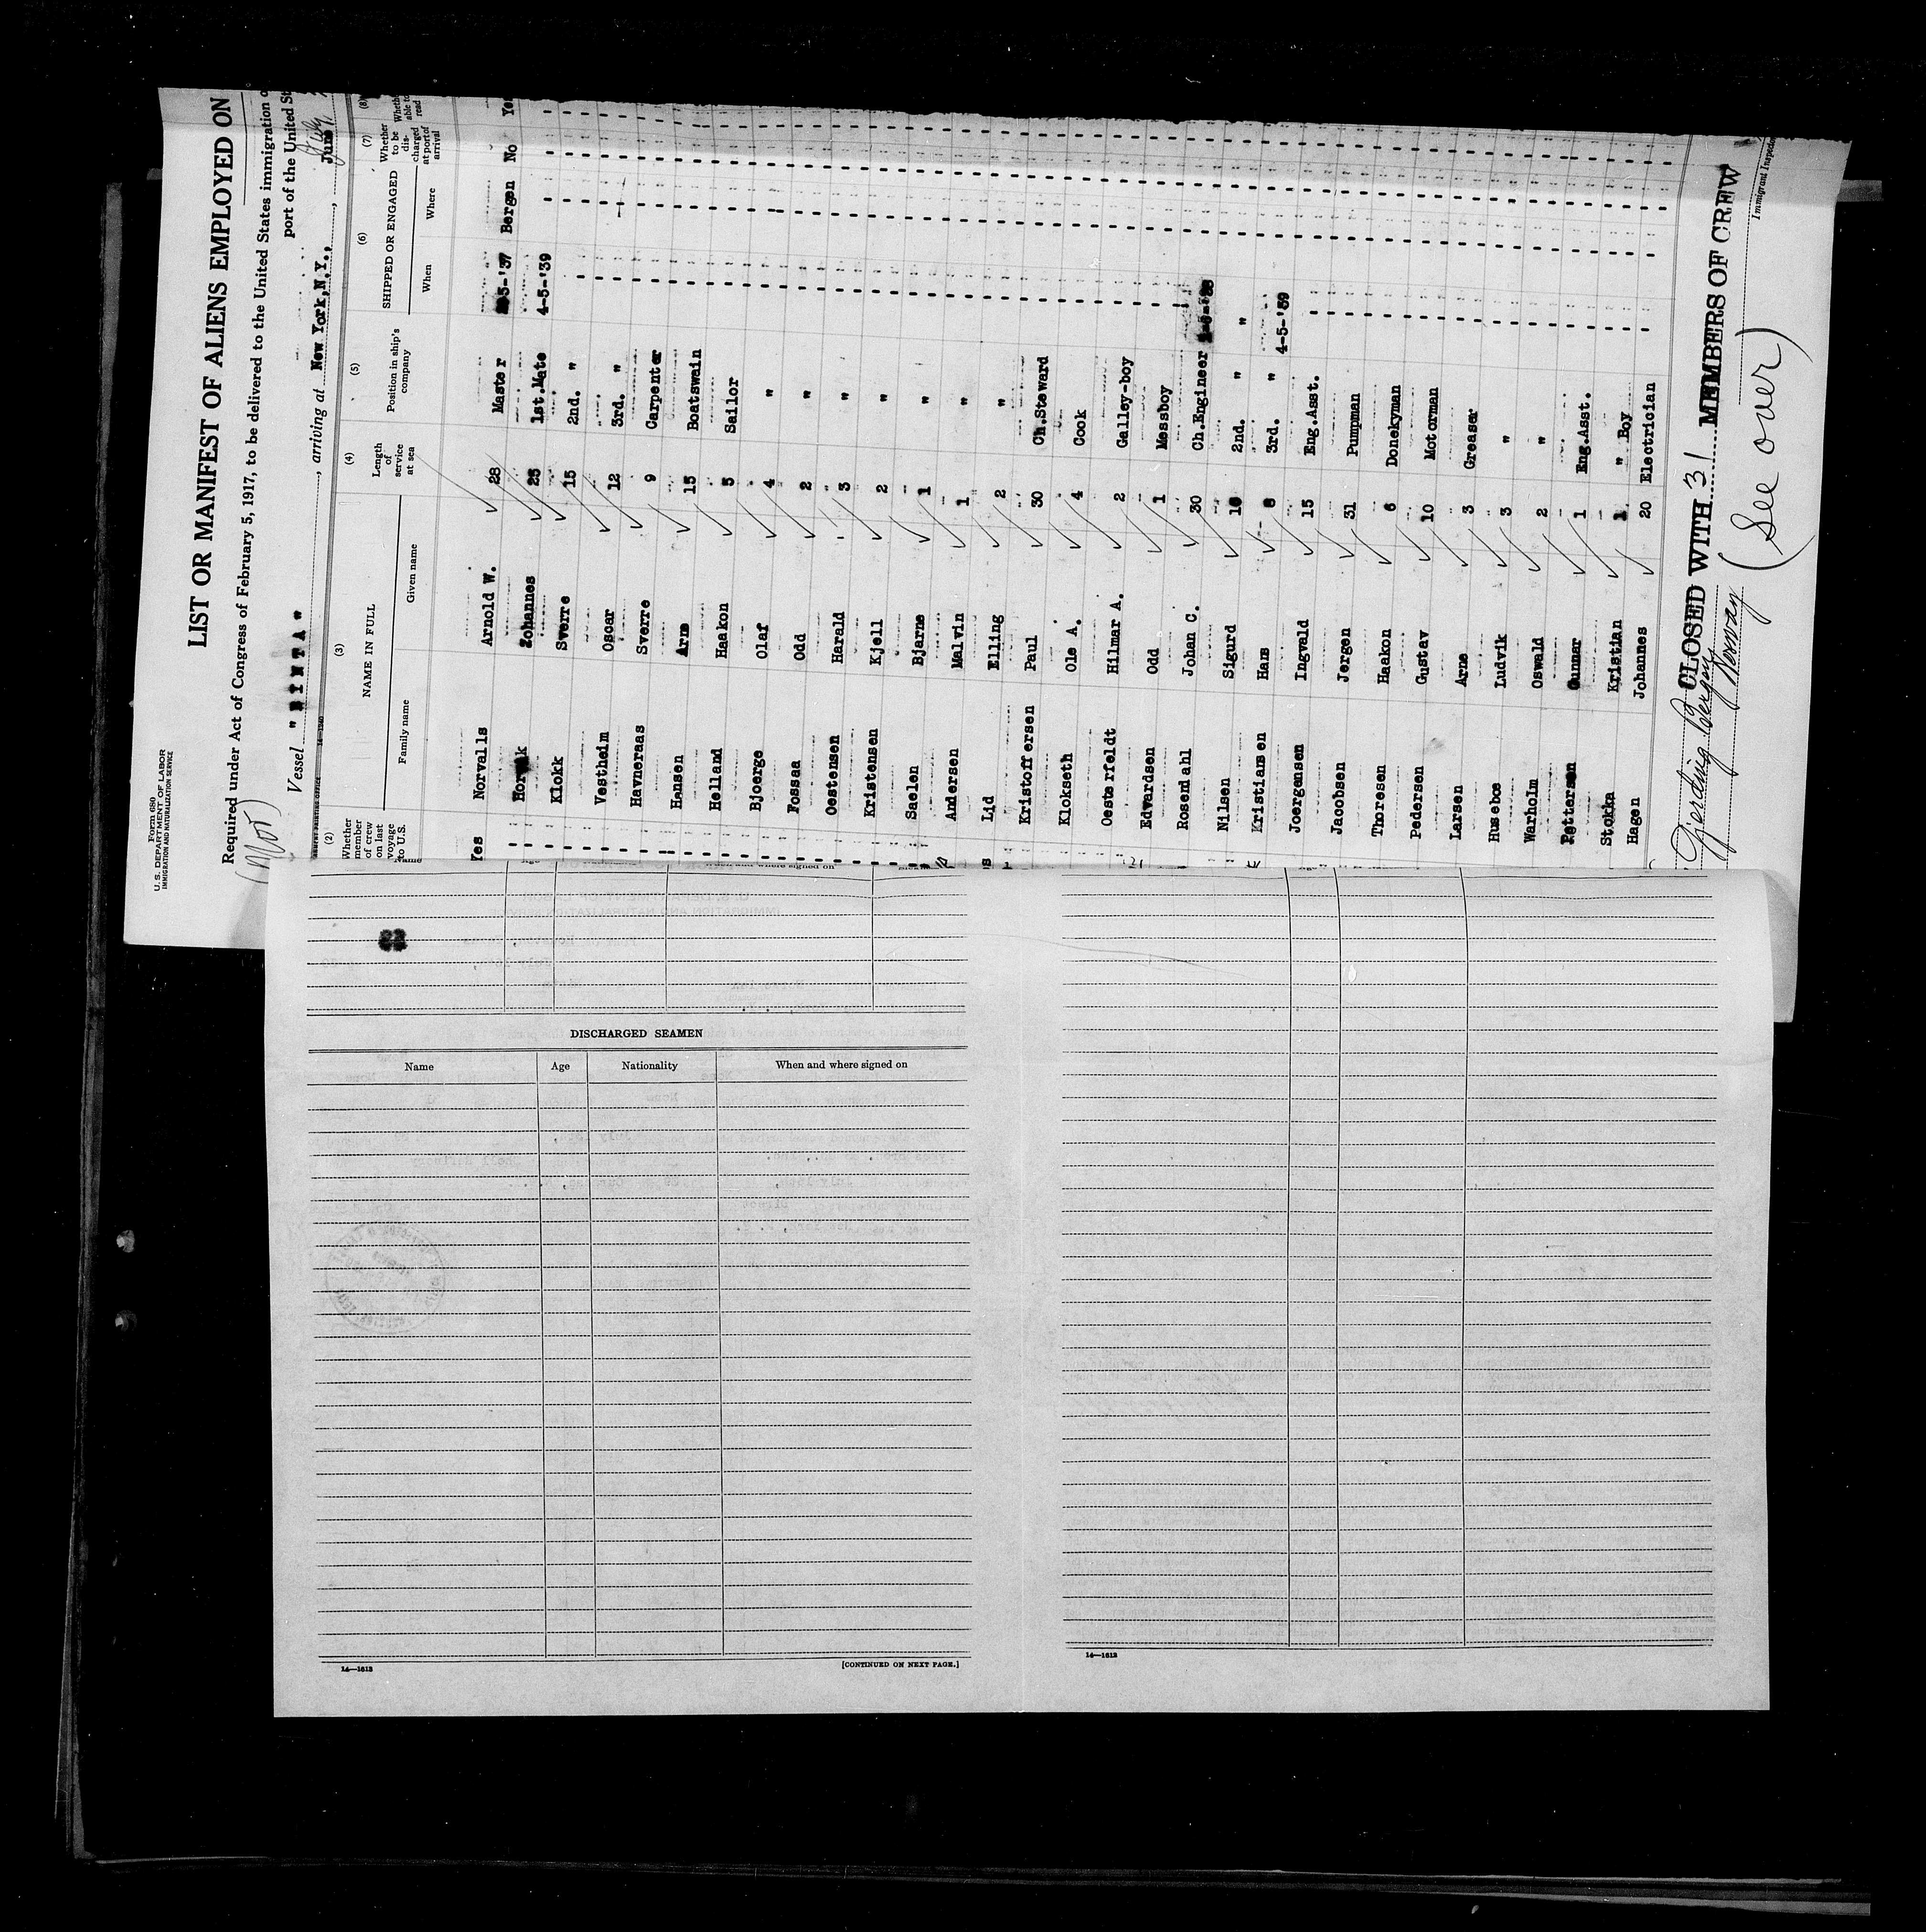 Form 680
U. S. DEPARTMENT OF LABOR
IMMIGRATION AND NATURALIZATION SERVICE
LIST OR MANIFEST OF ALIENS EMPLOYED ON
Required under Act of Congress of February 5, 1917, to be delivered to the United States immigration
port of the United St
Vessel "BINTA" , arriving at New York, N.Y., June
(2) Whether member of crew on last voyage to U.S.
(3) NAME IN FULL
Family name Given name
(4) Length of service at sea
(5) Position in ship's company
(6) SHIPPED OR ENGAGED
When Where
(7) Whether to be discharged at port of arrival
(8) Whether able to read
Yes Norvalls Arnold W. 28 Master 5-'37 Bergen No Yes
Johannes 25 1st.Mate 4-5-'39
Klokk Sverre 15 2nd. "
Vestheim Oscar 12 3rd. "
Havneraas Sverre 9 Carpenter
Hansen Arne 15 Boatswain
Helland Haakon 5 Sailor
Bjoerge Olaf 4 "
Fossaa Odd 2 "
Oestensen Harald 3 "
Kristensen Kjell 2 "
Saelen Bjarne 1 "
Andersen Malvin 1 "
Lid Elling 2 "
Kristoffersen Paul 30 Ch.Steward
Klokseth Ole A. 4 Cook
Oesterfeldt Hilmar A. 2 Galley-boy
Edvardsen Odd 1 Messboy
Rosendahl Johan C. 30 Ch.Engineer
Nilsen Sigurd 2nd. " "
Kristiansen Hans 8 3rd. " 4-5-'39
Joergensen Ingvald 15 Eng.Asst.
Jacobsen Jørgen 31 Pumpman
Thoresen Haakon 6 Donekyman
Pedersen Gustav 10 Motorman
Larsen Arne 3 Greaser
Husebøe Ludvik 3 "
Warholm Oswald 2 "
Pettersen Gunnar 1 Eng.Asst.
Stokka Kristian 1 " Boy
Hagen Johannes 20 Electrician
CLOSED WITH 31 MEMBERS OF CREW
Gjerding Bergen Norway
(See over)
Immigrant Inspector
DISCHARGED SEAMEN
Name Age Nationality When and where signed on
14—1613 [CONTINUED ON NEXT PAGE.]
14—1613